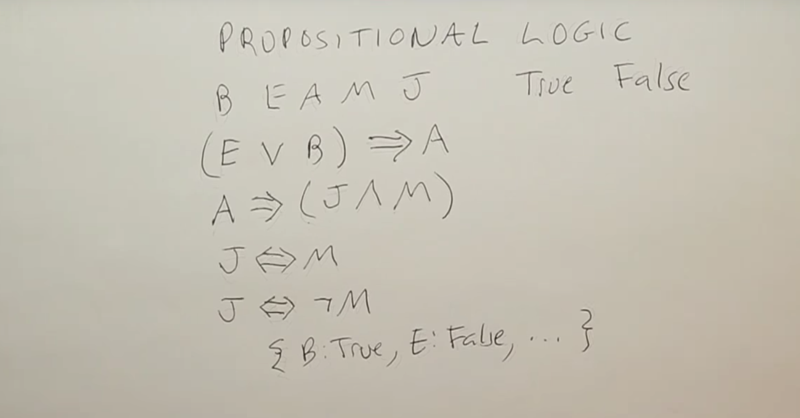 PROPOSITIONAL LOGIC
B E A M J True False
(E ∨ B) ⇒ A
A ⇒ (J ∧ M)
J ⇔ M
J ⇔ ¬M
{ B:True, E:False, ... }